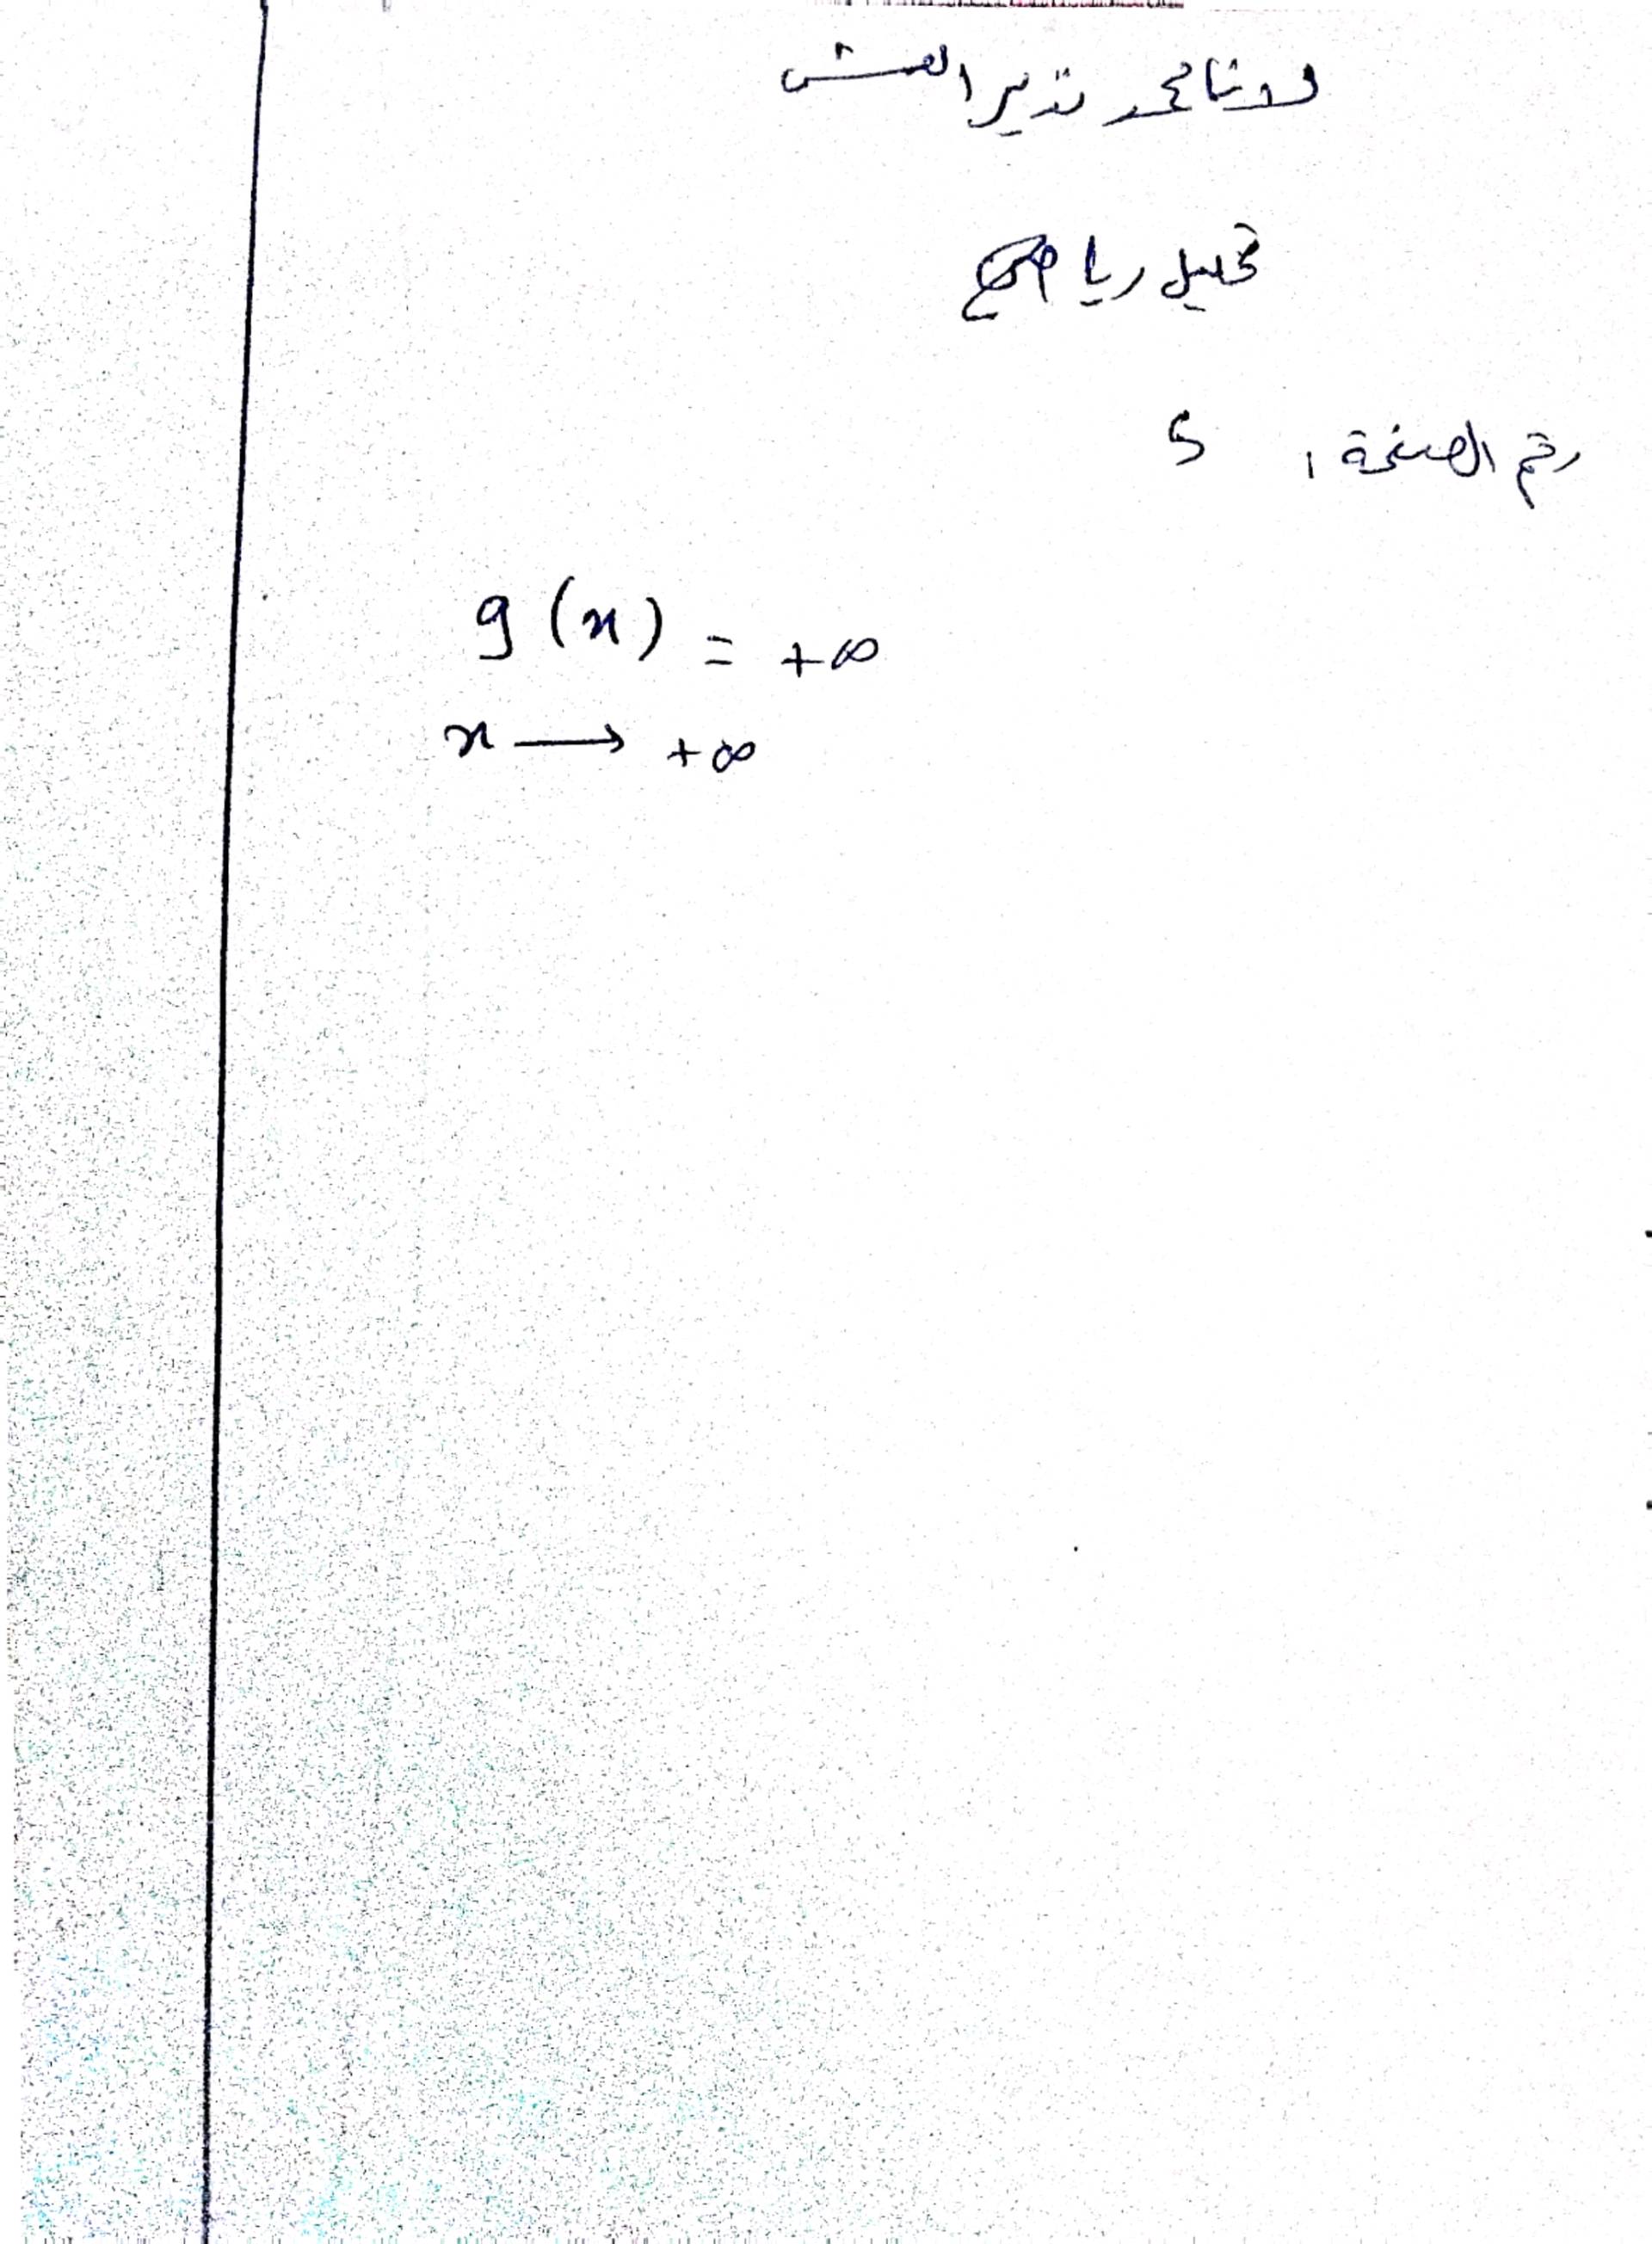 لانا محمد نذير العش
تحليل رياضي
رقم الصفحة: 5
g(x) = +∞
x → +∞